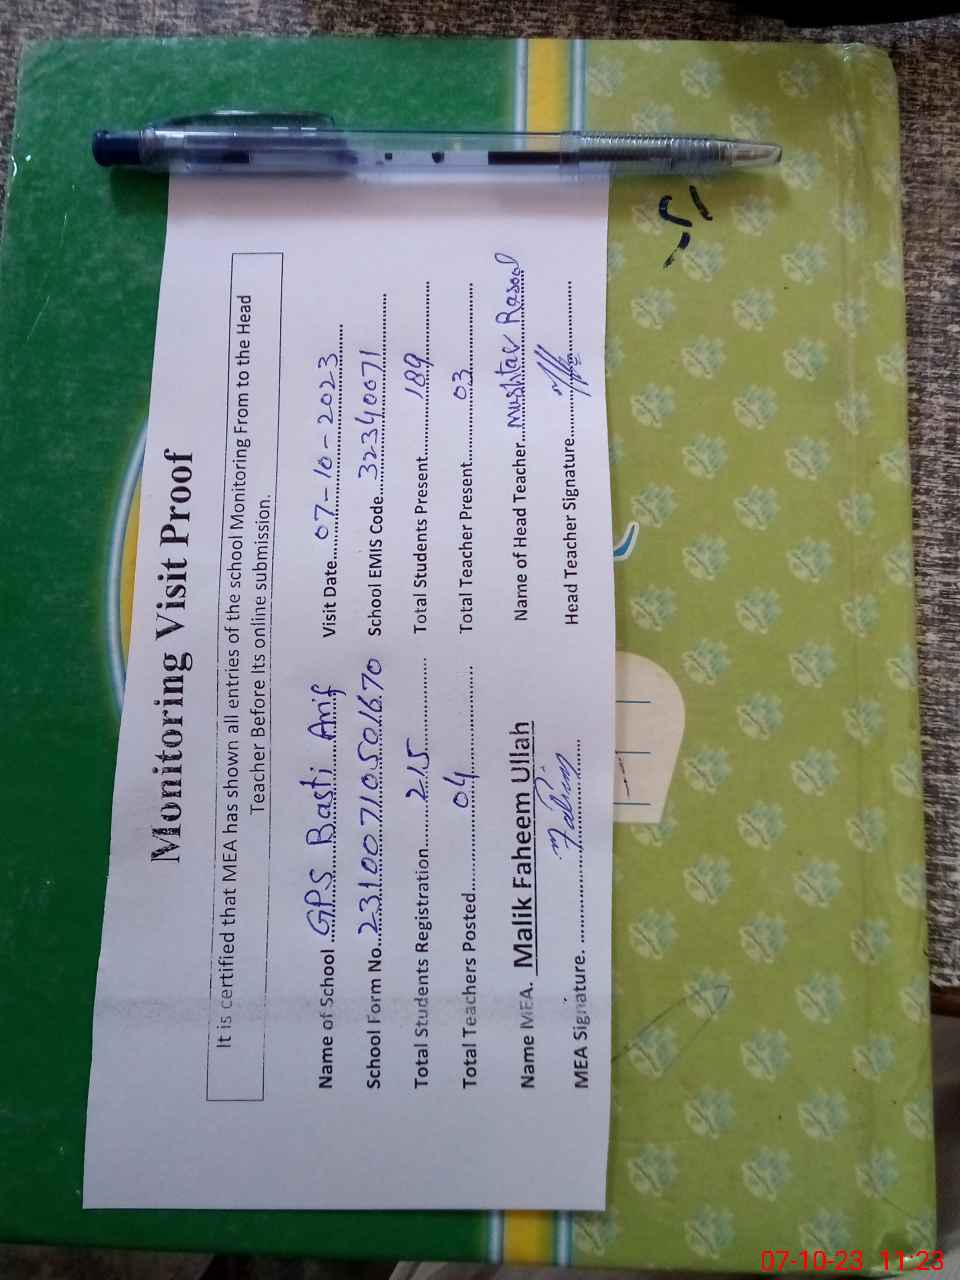 Monitoring Visit Proof
It is certified that MEA has shown all entries of the school Monitoring From to the Head
Teacher Before Its online submission.
Name of School GPS Basti Arif Visit Date 07-10-2023
School Form No. 23100710501670 School EMIS Code 32340071
Total Students Registration 215 Total Students Present 189
Total Teachers Posted 04 Total Teacher Present 03
Name MEA. Malik Faheem Ullah Name of Head Teacher Mushtaq Rasool
MEA Signature. Fahim Head Teacher Signature
07-10-23 11:23